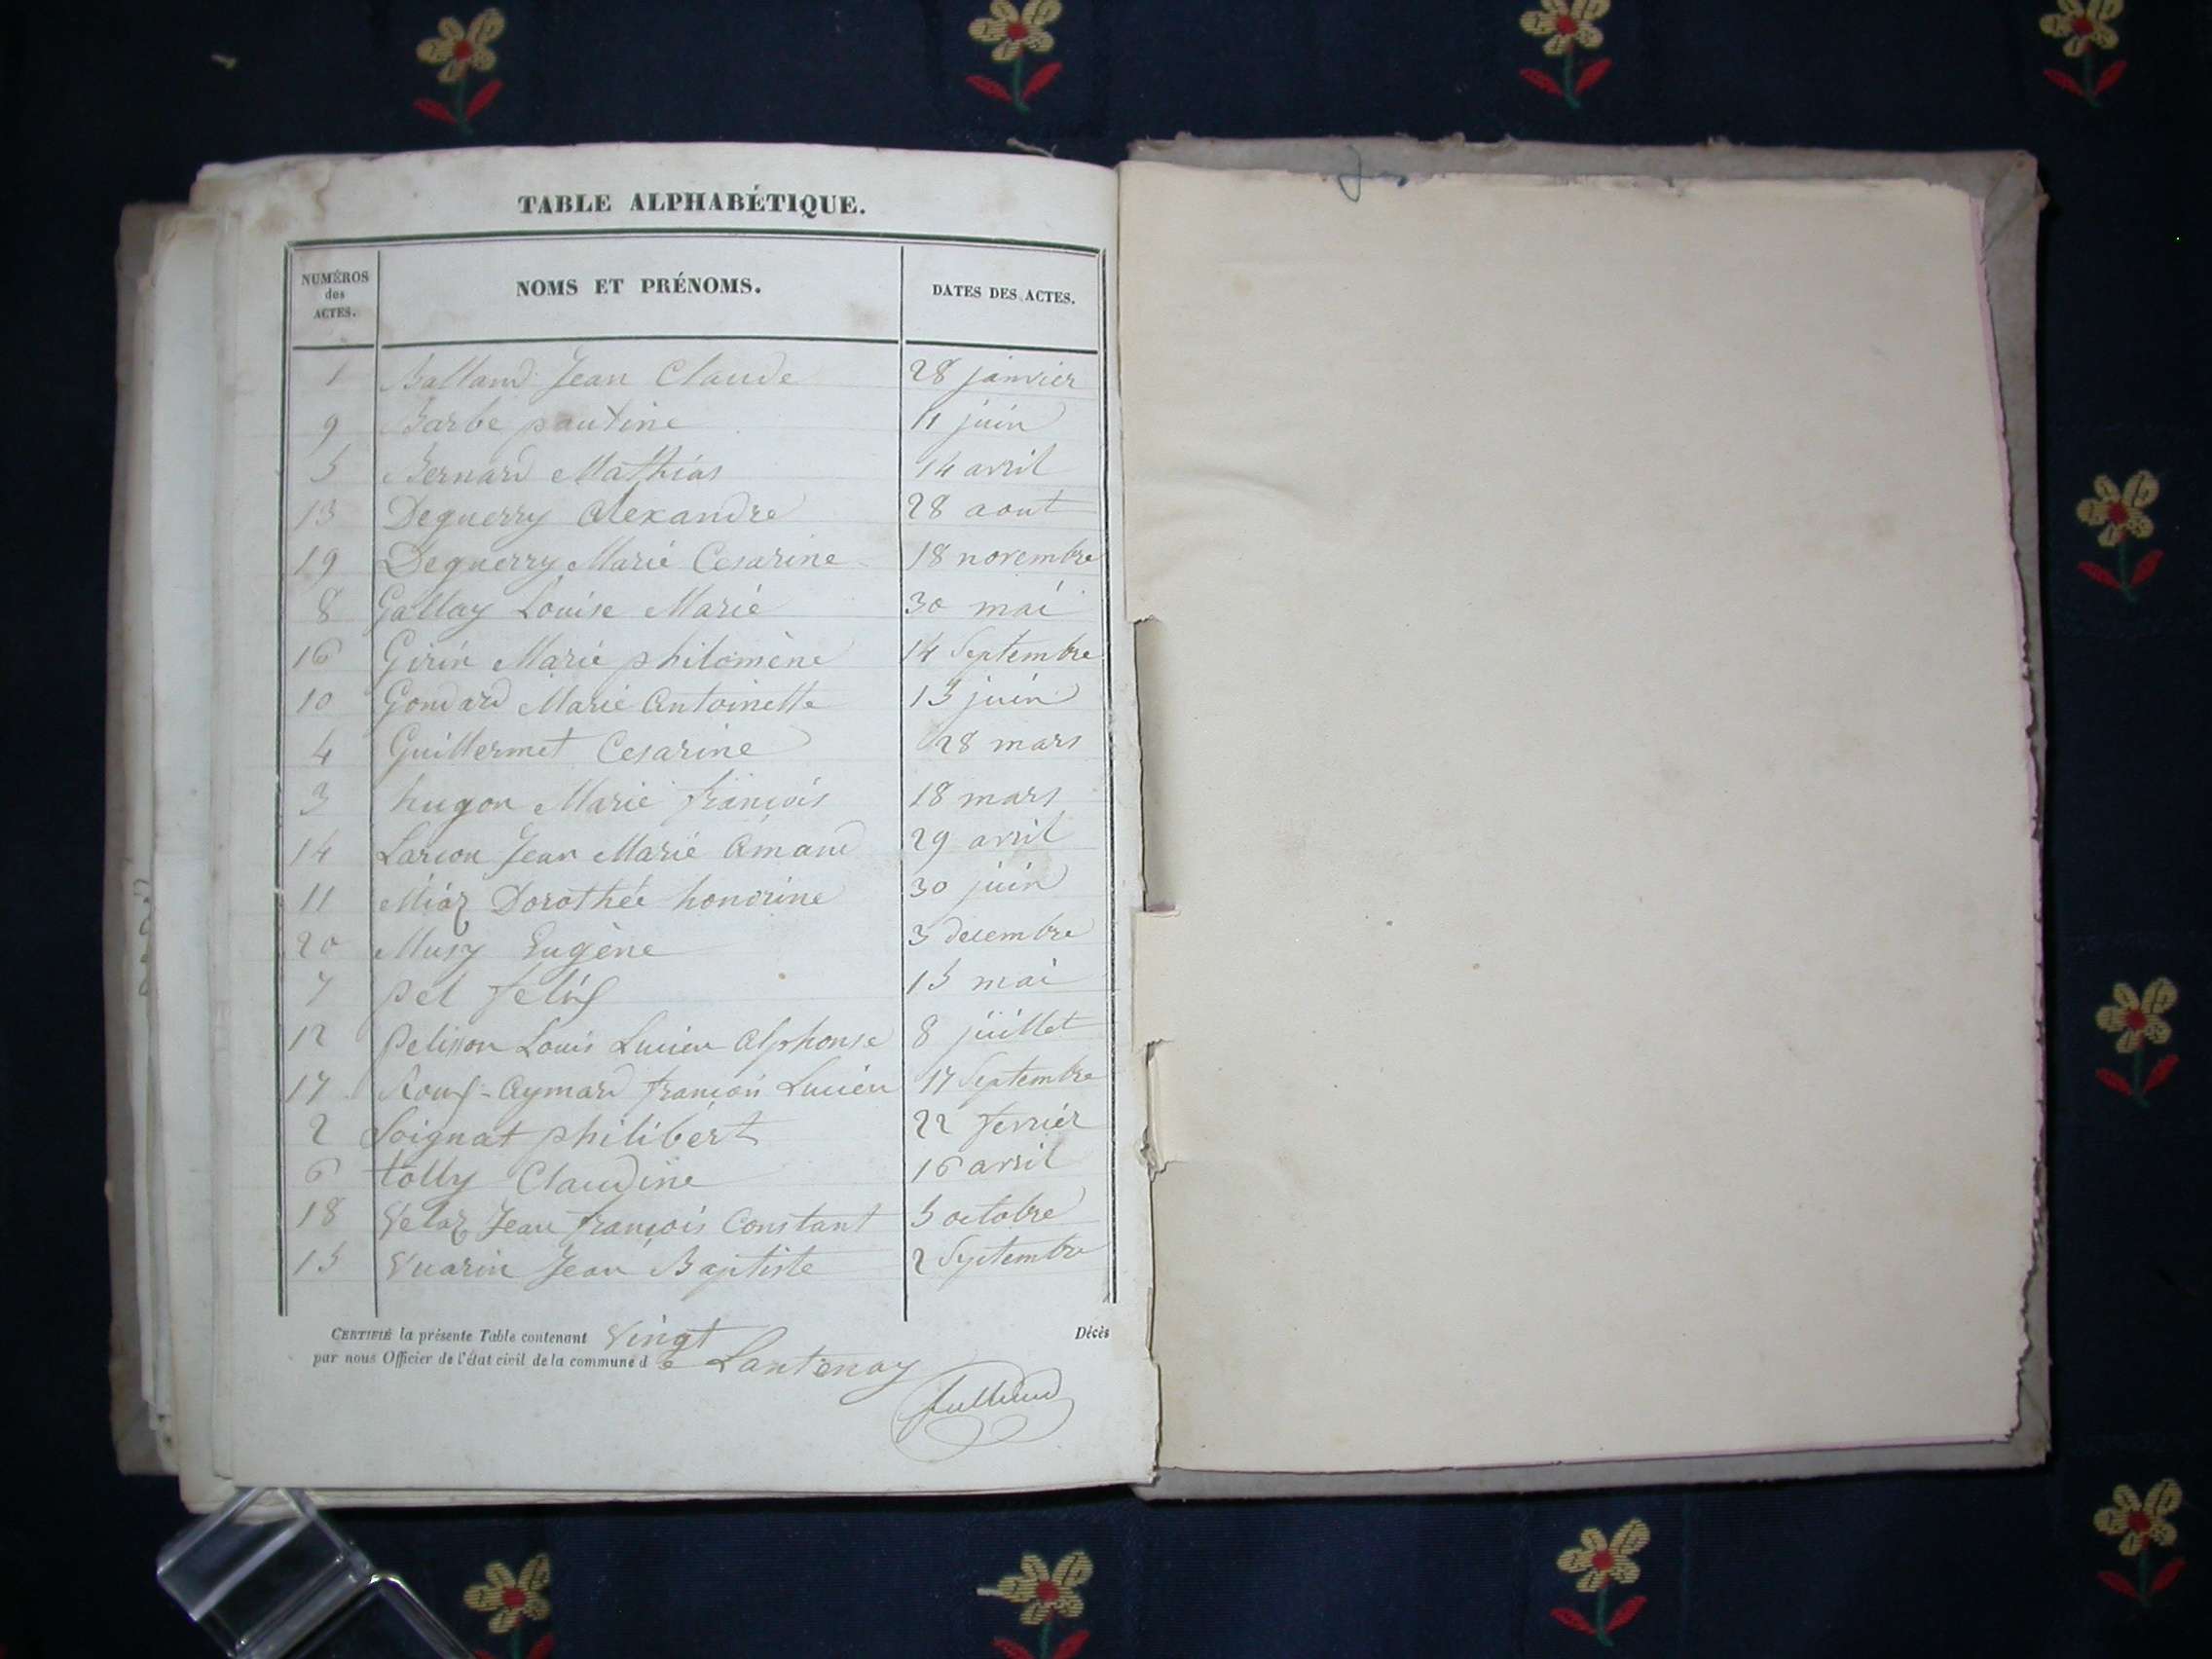 TABLE ALPHABÉTIQUE.
NUMÉROS des ACTES. NOMS ET PRÉNOMS. DATES DES ACTES.
1 Balland Jean Claude 28 janvier
9 Barbe pauline 11 juin
5 Bernard Mathias 14 avril
13 Deguerry Alexandre 28 aout
19 Deguerry Marie Cesarine 18 novembre
8 Gallay Louise Marie 30 mai
16 Girin Marie philomène 14 Septembre
10 Gondard Marie Antoinette 15 juin
4 Guillermet Cesarine 28 mars
3 hugon Marie françois 18 mars
14 Larçon Jean Marie Amand 29 avril
11 Miaz Dorothée honorine 30 juin
20 Musy Eugène 3 decembre
7 pel felix 15 mai
12 Pelisson Louis Lucien Alphonse 8 juillet
17 Roux-Aymard françois Lucien 17 Septembre
2 Soignat philibert 22 fevrier
6 tolly Claudine 16 avril
18 Velaz Jean françois Constant 5 octobre
15 Vuarin Jean Baptiste 2 Septembre
CERTIFIÉ la présente Table contenant Vingt Décès
par nous Officier de l'état civil de la commune d e Lantenay